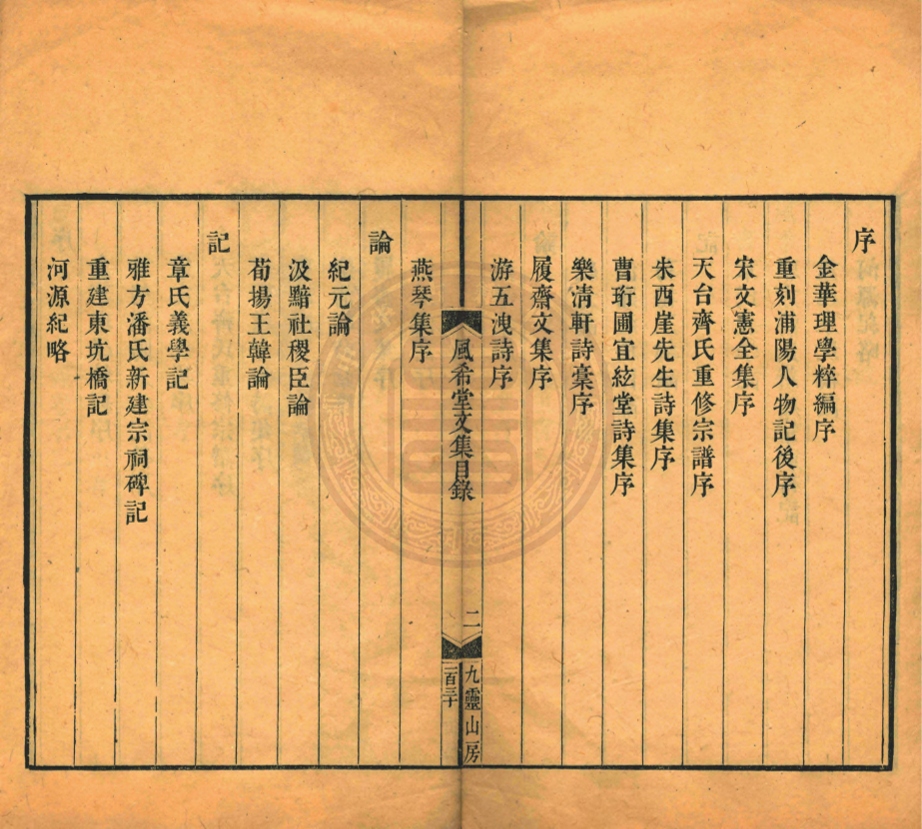 序
金華理學粹編序
重刻浦陽人物記後序
宋文憲全集序
天台齊氏重修宗譜序
朱西崖先生詩集序
曹珩圃宜絃堂詩集序
樂凊軒詩稾序
履齋文集序
游五洩詩序
風希堂文集目錄
二
九靈山房
二百三十
燕琴集序
論
紀元論
汲黯社稷臣論
荀揚王韓論
記
章氏義學記
雅方潘氏新建宗祠碑記
重建東坑橋記
河源紀略